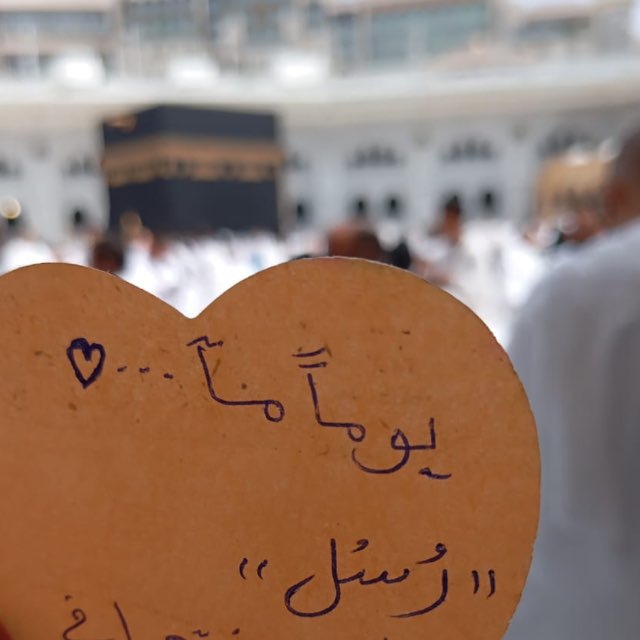 يوماً مآ ...♡
"رُسُل"